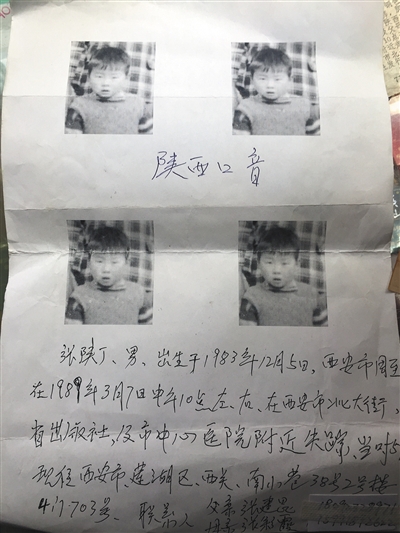 陕西口音
张陕丁、男、出生于1983年12月5日，西安市周至
在1989年3月7日中午10点左、右、在西安市北大街，
省出版社，及市中心医院附近失踪、当时5
现住西安市、莲湖区、西关、南小巷38号2号楼
4门703号、联系人 父亲 张建
母亲 张